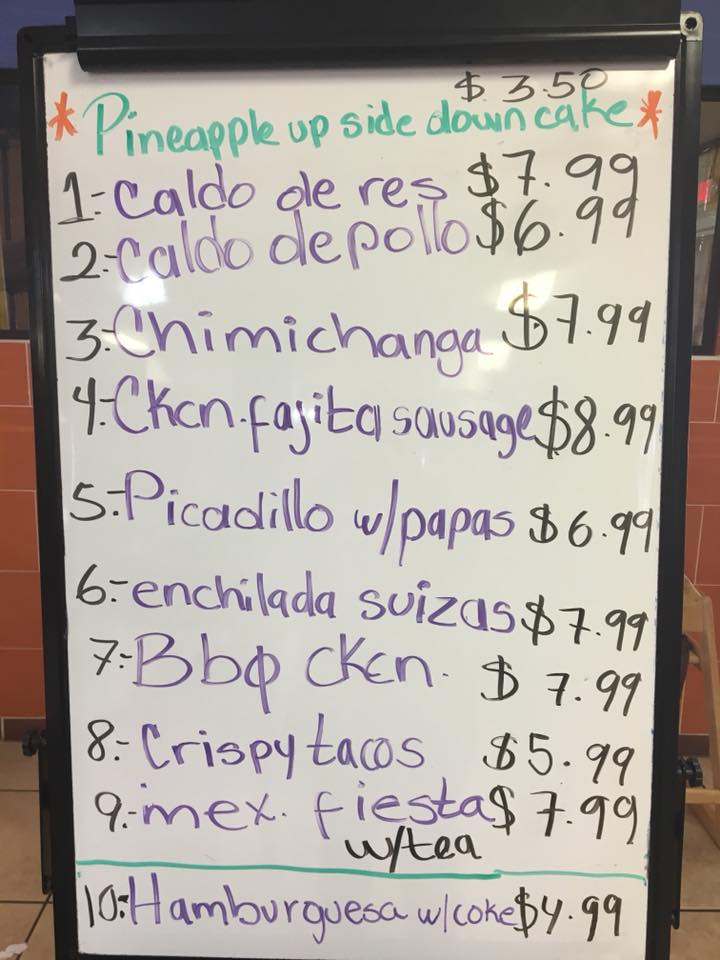 $ 3.50
* Pineapple up side down cake *
1:- Caldo de res $7.99
2:- Caldo de pollo $6.99
3:- Chimichanga $7.99
4:- Ckcn. fajita sausage $8.99
5:- Picadillo w/papas $6.99
6:- enchilada suizas $7.99
7:- Bbq ckcn. $ 7.99
8:- Crispy tacos $5.99
9:- mex. fiesta $7.99
w/tea
10:- Hamburguesa w/coke $4.99